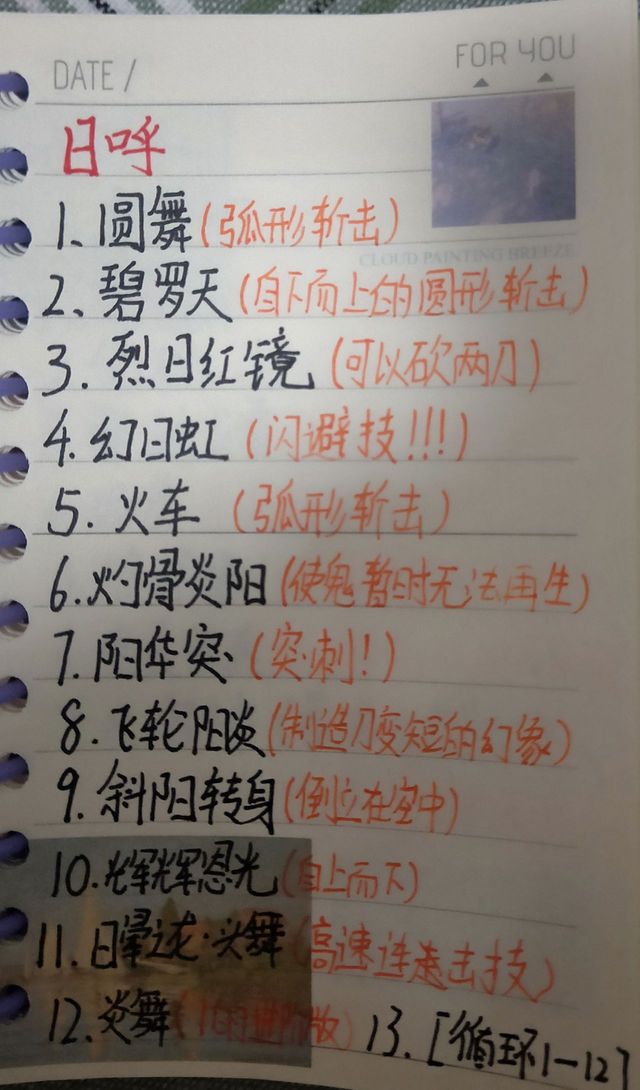 DATE /
FOR YOU
日呼
CLOUD PAINTING BREEZE
1、圆舞(弧形斩击)
2、碧罗天(自下而上的圆形斩击)
3.烈日红镜(可以砍两刀)
4.幻日虹(闪避技!!!)
5.火车(弧形斩击)
6.灼骨炎阳(使鬼暂时无法再生)
7.阳华突(突刺!)
8.飞轮阳炎(制造刀变短的幻象)
9.斜阳转身(倒立在空中)
10.辉辉恩光(自上而下)
11.日晕之龙·头舞(高速连击技)
12.炎舞(1的进阶版) 13.[循环1—12]